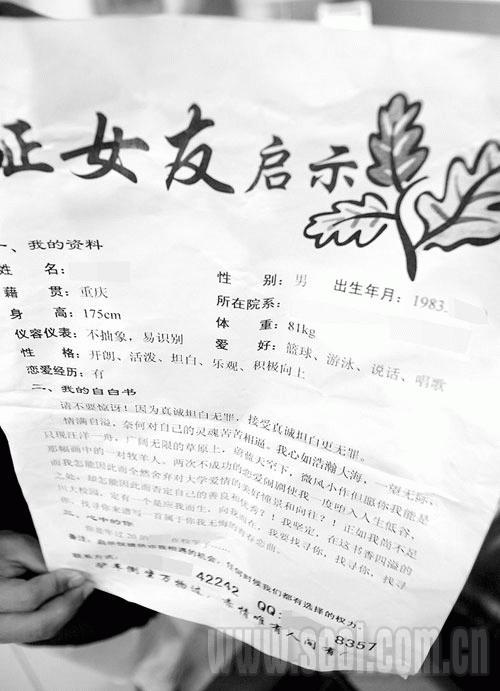 征女友启示
一、我的资料
姓 名：
性 别：男 出生年月：1983.
籍 贯：重庆
所在院系：
身 高：175cm
体 重：81kg
仪容仪表：不抽象，易识别
爱 好：篮球、游泳、说话、唱歌
性 格：开朗、活泼、坦白、乐观、积极向上
恋爱经历：有
二、我的自白书
请不要惊讶！因为真诚坦白无罪，接受真诚坦白更无罪。
情满自溢，奈何对自己的灵魂苦苦相逼。我心如浩瀚大海，一望无际，
只现汪洋一舟，广阔无限的草原上，蔚蓝天空下，微风小作但愿你我能是
那幅画中的一对牧羊人。两次不成功的恋爱闹剧使我一度堕入人生低谷，
而我怎能因此而全然舍弃对大学爱情的美好憧憬和向往？！正如我尚不是
之处，却怎能因此而否自己的善良和优秀？！我坚定，在这书香四溢的
大校园，定有一个是应我而生，向我而在，我要找寻你，找寻你，找寻
你，找寻你来谱写一首属于你我无悔的青春恋曲。
三、心中的你
你是年过20的 在校学
备注： 的机会，任何时候我们都有选择的权力。
联系方式：
42242 QQ: 8357
www.scol.com.cn